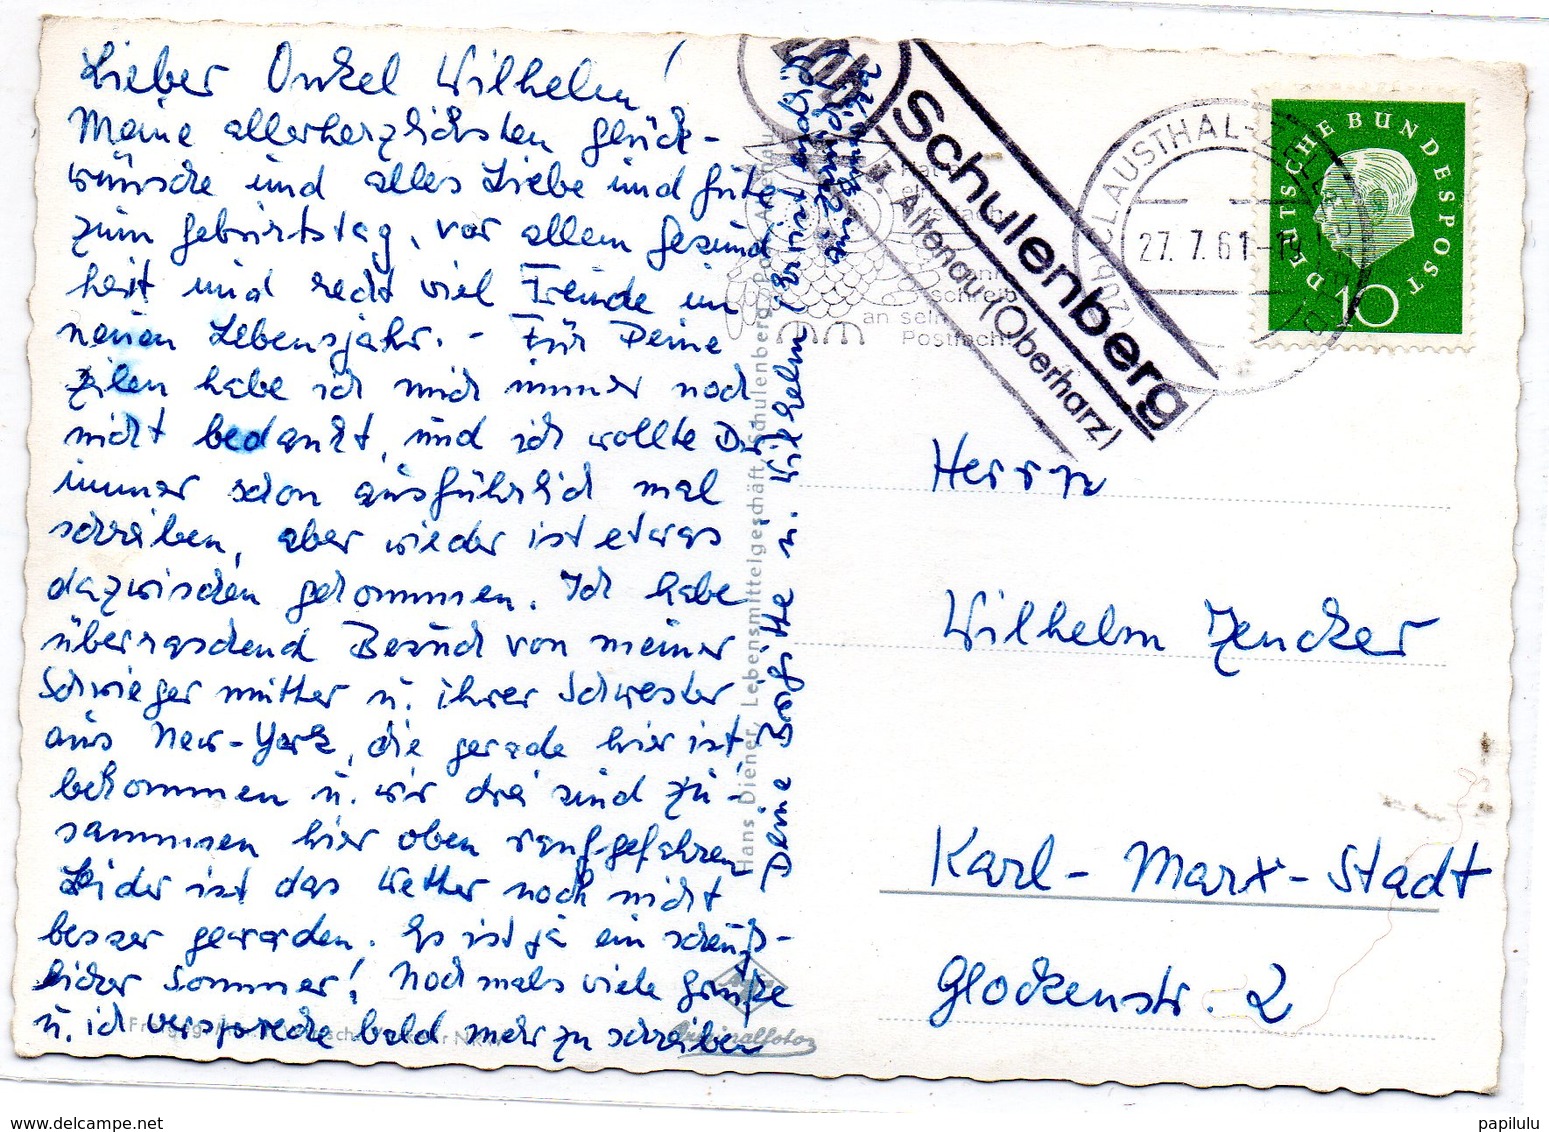 Lieber Onkel Wilhelm!
Meine allerherzlichsten Glück-
wünsche und alles Liebe und Gute
zum Geburtstag, vor allem Gesund
heit und recht viel Freude im
neuen Lebensjahr. - Für Deine
Zeilen habe ich mich immer noch
nicht bedankt, und ich wollte Dir
immer schon ausführlich mal
schreiben, aber wieder ist etwas
dazwischen gekommen. Ich habe
überraschend Besuch von meiner
Schwiegermutter u. ihrer Schwester
aus New-York, die gerade hier ist,
bekommen u. wir drei sind zu-
sammen hier oben raufgefahren
Leider ist das Wetter noch nicht
besser geworden. Es ist ja ein scheuß-
licher Sommer! Nochmals viele Grüße
u. ich verspreche bald mehr zu schreiben
Deine Brigitte u. Wilhelm (Er ist
Hans Diener, Lebensmittelgeschäft, Schulenberg
Schulenberg
ü. Altenau (Oberharz)
(20b) CLAUSTHAL-ZELLERF
27.7.61-19
an sein
Postfach
DEUTSCHE BUNDESPOST
10
Herrn
Wilhelm Zencker
Karl-Marx-Stadt
Glockenstr. 2
Agfa
Originalfoto
delcampe.net
papilulu